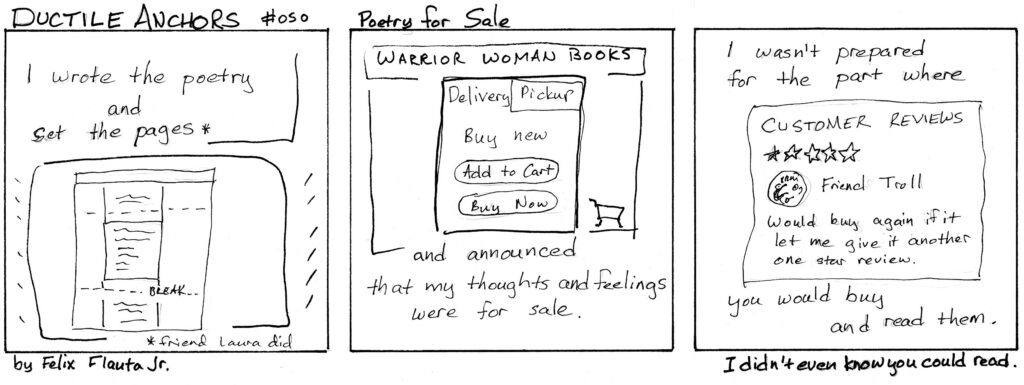 DUCTILE ANCHORS #050
I wrote the poetry
and
set the pages *
BREAK
* friend Laura did
by Felix Flauta Jr.
Poetry for Sale
WARRIOR WOMAN BOOKS
Delivery Pickup
Buy new
Add to Cart
Buy Now
and announced
that my thoughts and feelings
were for sale.
I wasn't prepared
for the part where
CUSTOMER REVIEWS
Friend Troll
Would buy again if it
let me give it another
one star review.
you would buy
and read them.
I didn't even know you could read.